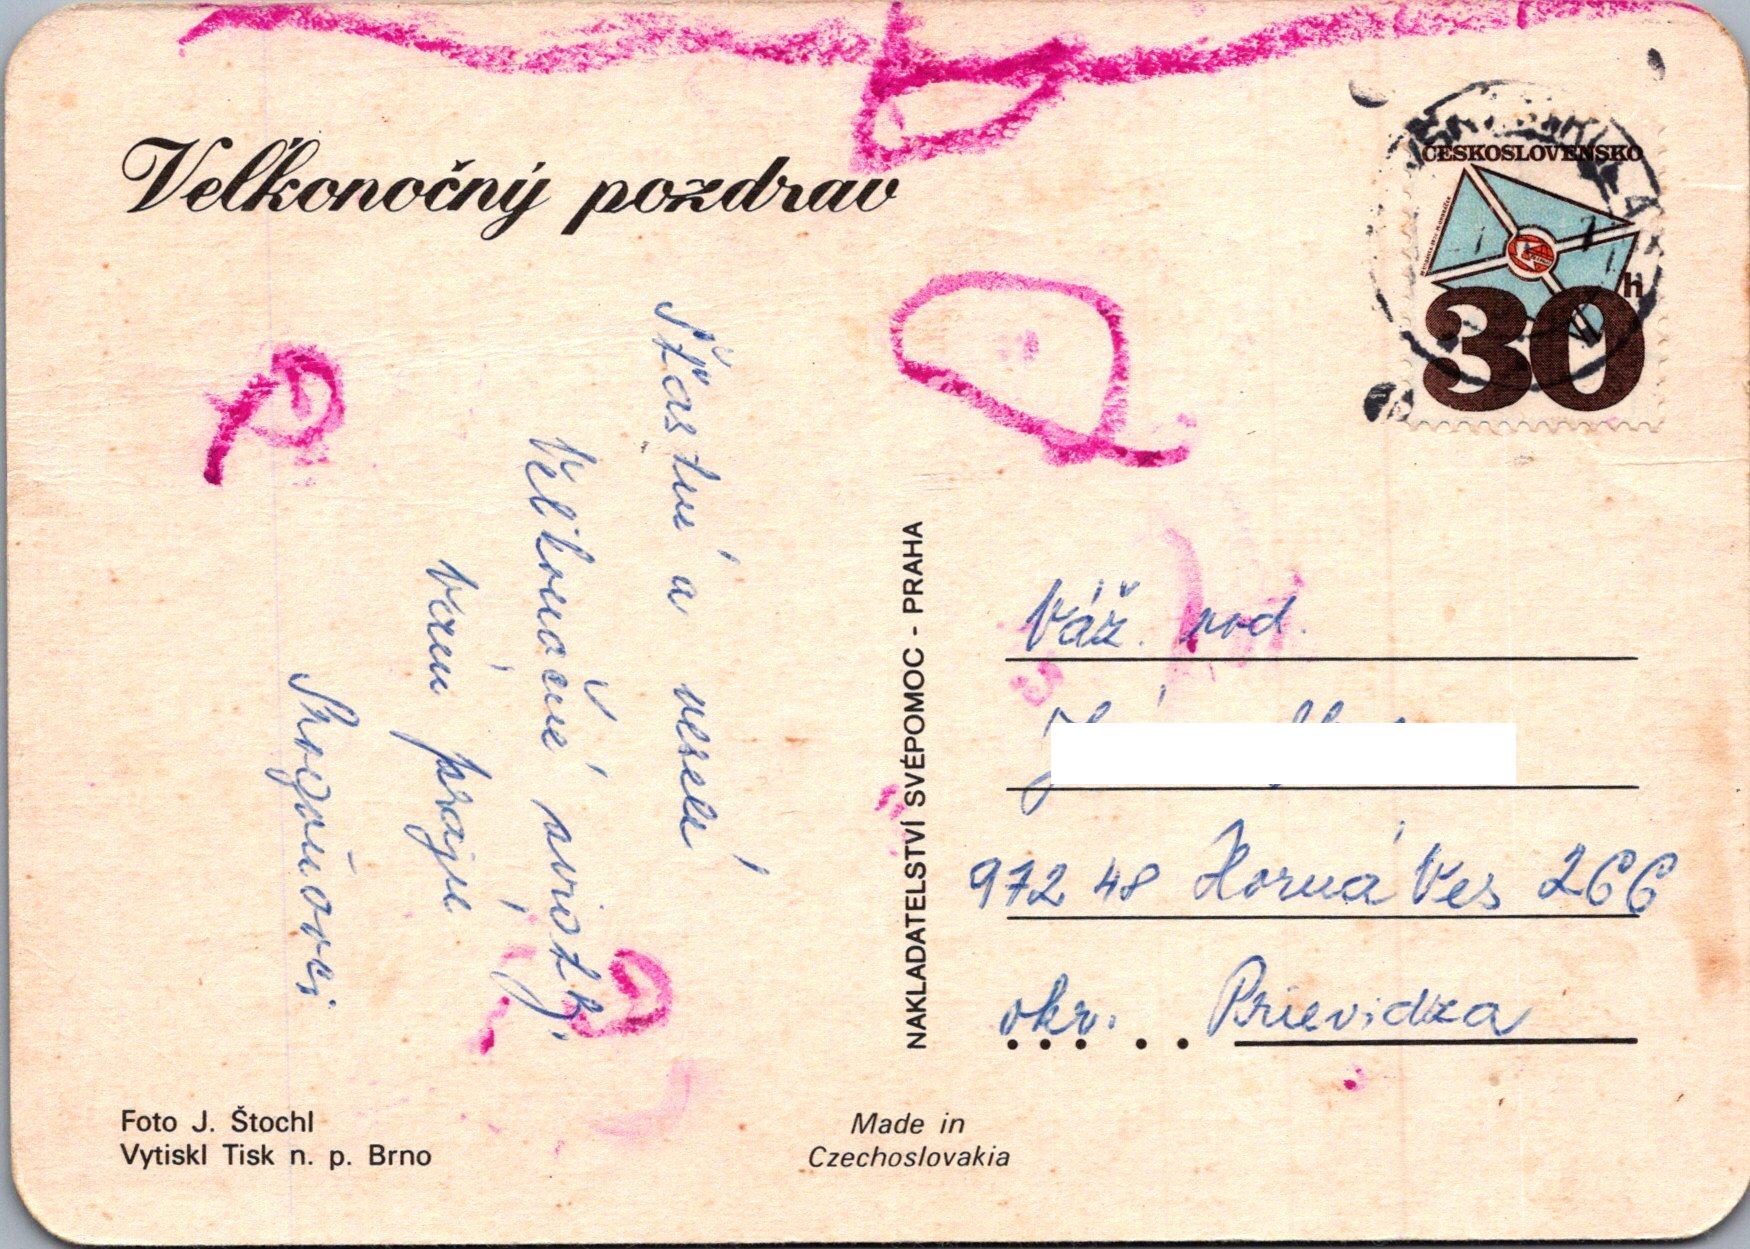 Veľkonočný pozdrav
ČESKOSLOVENSKO
30 h
Šťastné a veselé
Veľkonočné sviatky
Vám praje
NAKLADATELSTVÍ SVÉPOMOC - PRAHA
Váž. rod.
972 48 Horná Ves 266
okr. Prievidza
Foto J. Štochl
Vytiskl Tisk n. p. Brno
Made in
Czechoslovakia